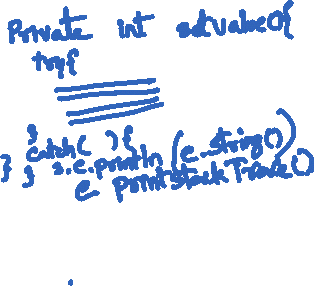 Private int setvalue(){
try{
}
catch( ){
s.e.println (e.string())
} } e printstackTrace()